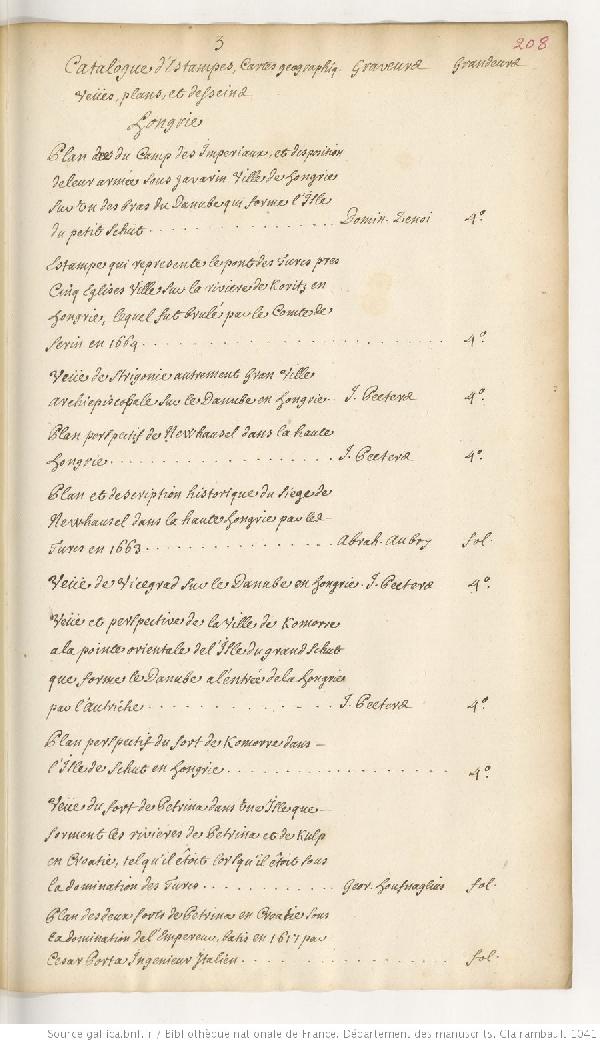 3
208
Catalogue d'Estampes, Cartes geographiq. Graveurs Grandeurs
Veües, plans, et desseins
Hongrie
Plan du Camp des Imperiaux, et disposition
de leur armée sous Javarin Ville de Hongrie
sur un des bras du Danube qui forme l'Isle
du petit Schut . . . . . . . . . . Domin. Zenoi 4°.
Estampe qui represente le pont des Turcs pres
Cinq Eglises Ville sur la riviere de Koritz en
Hongrie, lequel fut brulé par le Comte de
Serin en 1664 . . . . . . . . . . 4°.
Veüe de Strigonie autrement Gran Ville
Archiepiscopale sur le Danube en Hongrie . . J. Peeters 4°.
Plan perspectif de Newhausel dans la haute
Hongrie . . . . . . . . . . J. Peeters 4°.
Plan et description historique du Siege de
Newhausel dans la haute Hongrie par les
Turcs en 1663 . . . . . . . . . . Abrah. Aubry fol.
Veüe de Vicegrad sur le Danube en Hongrie . J. Peeters 4°.
Veüe et perspective de la Ville de Komorre
a la pointe orientale de l'Isle du grand Schut
que forme le Danube a l'entrée de la Hongrie
par l'Autriche . . . . . . . . . . J. Peeters 4°.
Plan perspectif du fort de Komorre dans
l'Isle de Schut en Hongrie . . . . . . . . . . 4°.
Veüe du fort de Petrina dans une Isle que
forment les rivieres de Petrina et de Kulp
en Croatie, tel qu'il étoit lorsqu'il étoit sous
la domination des Turcs . . . . . . . . . . Geor. Houfnaglius fol.
Plan des deux forts de Petrina en Croatie sous
la domination de l'Empereur, batis en 1617 par
Cesar Porta Ingenieur Italien . . . . . . . . . . fol.
Source gallica.bnf.fr / Bibliothèque nationale de France. Département des manuscrits. Clairambault 1041